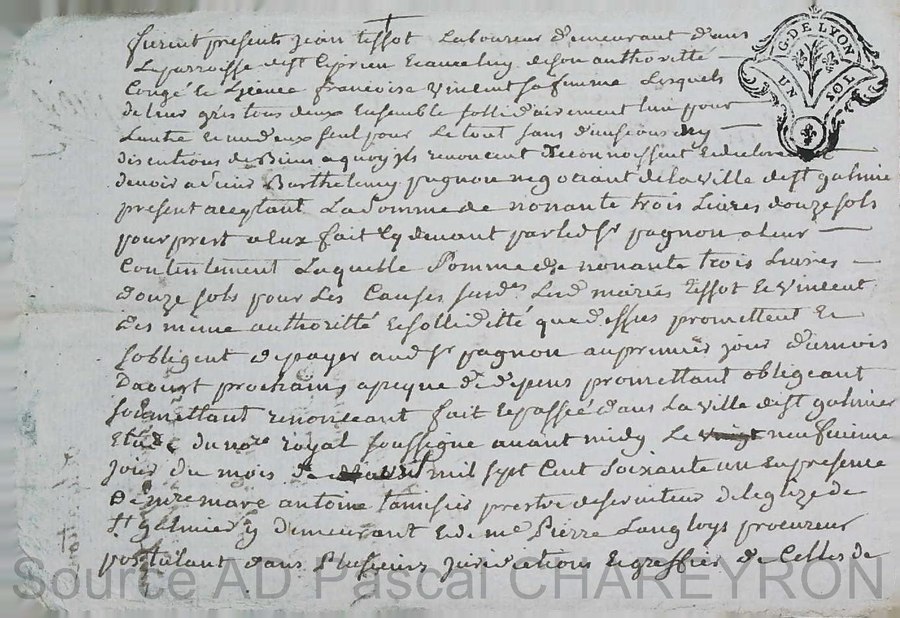 furent presents jean tissot Laboureur demeurant dans
La parroisse de st Ciprien et avec luy de son authoritté
Congé et Licence francoise Vincent sa femme Lesquels
de leur gré tous deux Ensemble sollidairement l'un pour
Lautre et un deux seul pour Le tout sans division ny
discutions de Biens a quoy ils renoncent Reconnoissent et declarent
devoir a sieur Barthelemy pagnon negociant de la Ville de st galmier
present acceptant La Somme de nonante trois Livres douze sols
pour prest a Eux fait Cy devant par led sr pagnon a leur
Contentement Laquelle Somme de nonante trois Livres
douze sols pour Les Causes susd.es Lesd mariés tissot et Vincent
des meme authoritté et solliditté que dessus promettent et
sobligent de payer aud sr pagnon au premier jour du mois
Daoust prochain, a peyne de depens promettant obligeant
soumettant renonceant fait et passé dans La Ville de st galmier
Etude du no.re royal soussigne avant midy Le vingt neufvieme
jour du mois de avril mil sept Cent soixante un En presence
De m.re marc antoine tamisier prestre desserviteur de leglize de
st galmier y demeurant et de me Pierre Langloys procureur
postulant dans Plusieurs juridictions et greffier de Celles de
G. DE LYON
UN SOL
Source AD Pascal CHAREYRON